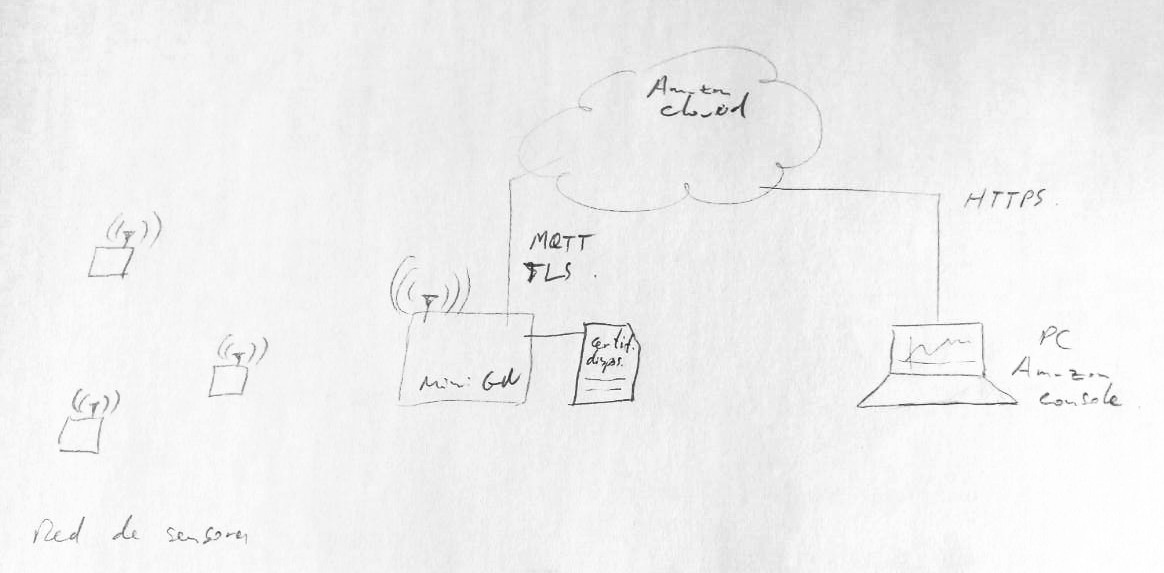 Amazon
cloud
HTTPS.
MQTT
TLS.
Certif.
dispos.
Mini GW
PC
Amazon
console.
Red de sensores